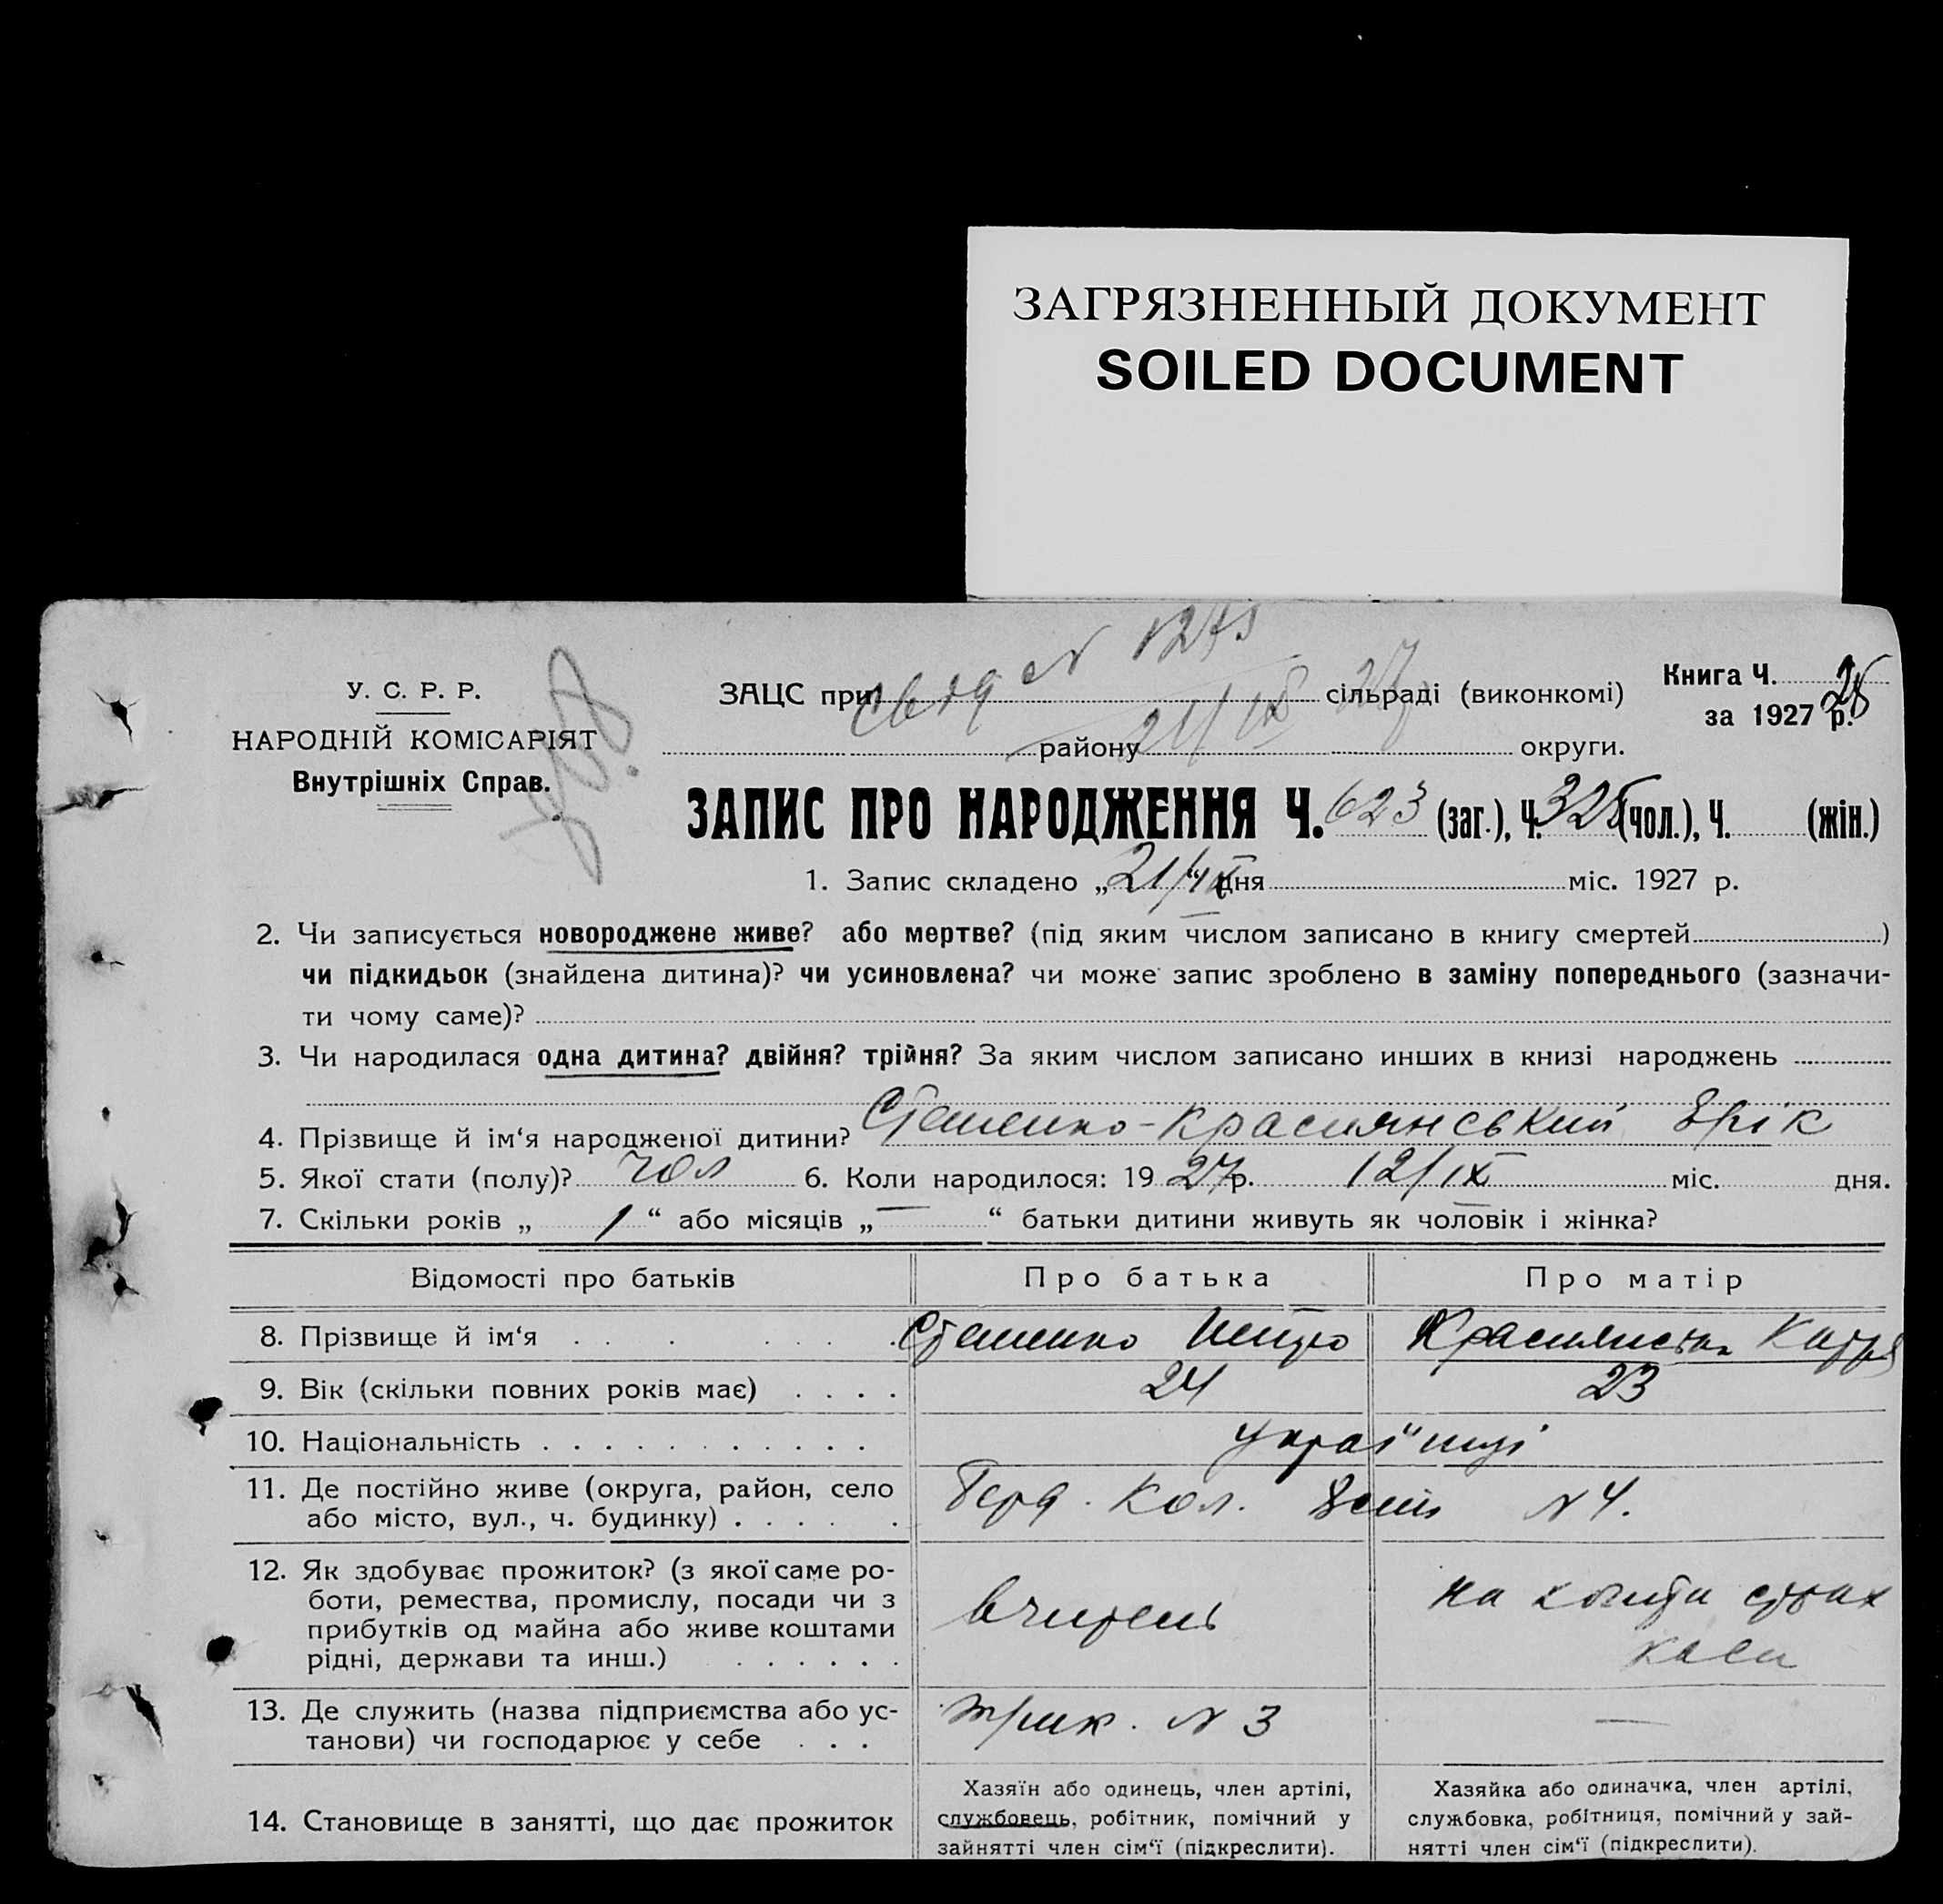 ЗАГРЯЗНЕННЫЙ ДОКУМЕНТ
SOILED DOCUMENT
У. С. Р. Р.
НАРОДНІЙ КОМІСАРІЯТ
Внутрішніх Справ.
N
ЗАЦС при сільраді (виконкомі)
району округи.
Книга Ч.
за 1927 р.
ЗАПИС ПРО НАРОДЖЕННЯ Ч. 623 (заг.), Ч. 325 (чол.), Ч. (жін.)
1. Запис складено „21/IX“ дня міс. 1927 р.
2. Чи записується новороджене живе? або мертве? (під яким числом записано в книгу смертей )
чи підкидьок (знайдена дитина)? чи усиновлена? чи може запис зроблено в заміну попереднього (зазначи-
ти чому саме)?
3. Чи народилася одна дитина? двійня? трійня? За яким числом записано инших в книзі народжень
4. Прізвище й ім‘я народженої дитини? Стешенко-Краснянський Ерік
5. Якої стати (полу)? чол 6. Коли народилося: 19 27 р. 12/IX міс. дня.
7. Скільки років „ 1 “ або місяців „ — “ батьки дитини живуть як чоловік і жінка?
Відомості про батьків Про батька Про матір
8. Прізвище й ім‘я . . . . . . . Стешенко Краснянська Катря
9. Вік (скільки повних років має) . . . . 24 23
10. Національність . . . . . . . . . . . . українці
11. Де постійно живе (округа, район, село
або місто, вул., ч. будинку) . . . . . Кол. N 4.
12. Як здобуває прожиток? (з якої саме ро-
боти, ремества, промислу, посади чи з
прибутків од майна або живе коштами
рідні, держави та инш.) . . . . . .
вчитель
на кошти страх
каси
13. Де служить (назва підприємства або ус-
танови) чи господарює у себе . . . N 3 —
14. Становище в занятті, що дає прожиток
Хазяїн або одинець, член артілі,
службовець, робітник, помічний у
зайнятті член сім‘ї (підкреслити).
Хазяйка або одиначка, член артілі,
службовка, робітниця, помічний у зай-
нятті член сім‘ї (підкреслити).